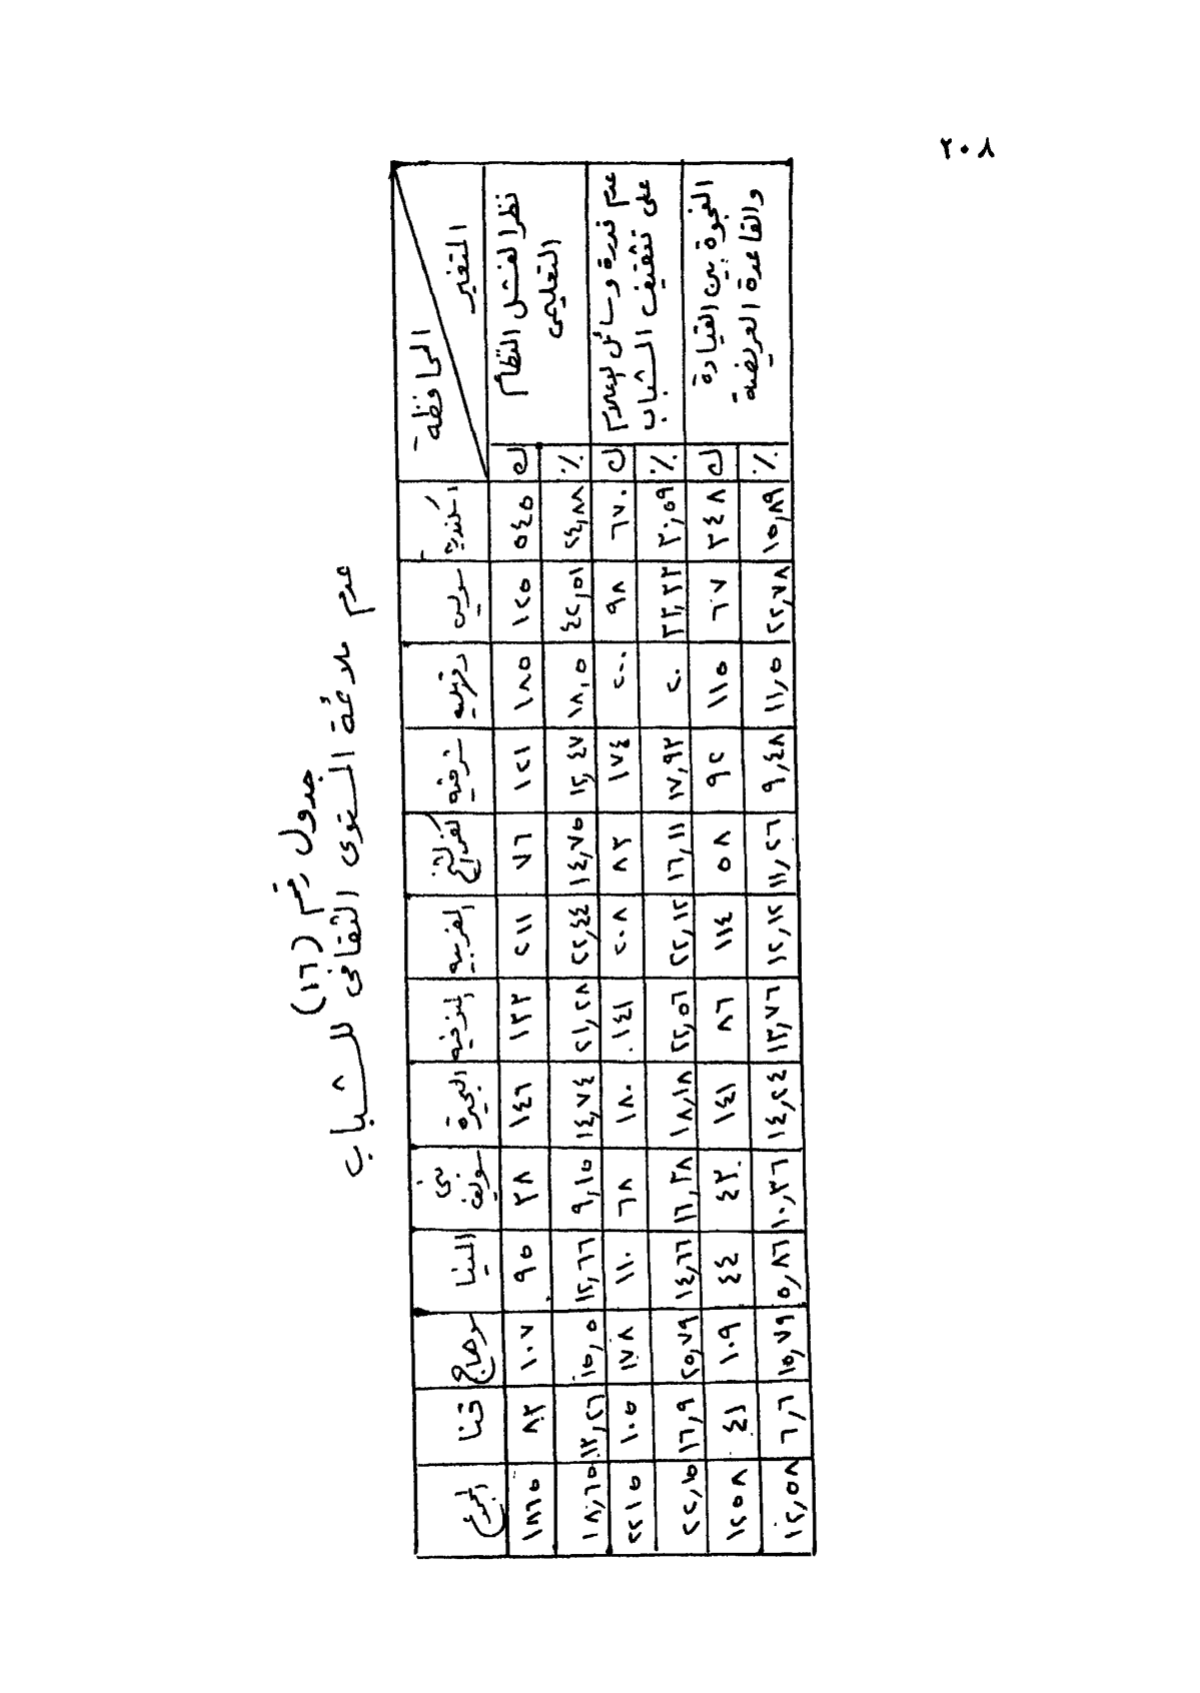 ٢٠٨
جدول رقم (١٦)
عدم ملائمة المستوى الثقافى للشباب
المحافظة
المتغير
اسكندرية سويس دقهليه شرقيه كفر الشيخ الغربيه المنوفيه البحيرة بنى سويف المنيا سوهاج قنا المجموع
نظرا لفشل النظام
التعليمى
ك ٥٤٥ ١٢٥ ١٨٥ ١٢١ ٧٦ ٢١١ ١٣٣ ١٤٦ ٣٨ ٩٥ ١٠٧ ٨٣ ١٨٦٥
٪ ٢٤,٨٨ ٤٢,٥١ ١٨,٥ ١٢,٤٧ ١٤,٧٥ ٢٢,٤٤ ٢١,٢٨ ١٤,٧٤ ٩,١٥ ١٢,٦٦ ١٥,٥ ١٣,٢٦ ١٨,٦٥
عدم قدرة وسائل الاعلام
على تثقيف الشباب
ك ٦٧٠ ٩٨ ٢٠٠ ١٧٤ ٨٣ ٢٠٨ ١٤١ ١٨٠ ٦٨ ١١٠ ١٧٨ ١٠٥ ٢٢١٥
٪ ٣٠,٥٩ ٣٣,٣٣ ٢٠ ١٧,٩٢ ١٦,١١ ٢٢,١٢ ٢٢,٥٦ ١٨,١٨ ١٦,٣٨ ١٤,٦٦ ٢٥,٧٩ ١٦,٩ ٢٢,١٥
الفجوة بين القيادة
والقاعدة العريضة
ك ٣٤٨ ٦٧ ١١٥ ٩٢ ٥٨ ١١٤ ٨٦ ١٤١ ٤٣ ٤٤ ١٠٩ ٤١ ١٢٥٨
٪ ١٥,٨٩ ٢٢,٧٨ ١١,٥ ٩,٤٨ ١١,٢٦ ١٢,١٢ ١٣,٧٦ ١٤,٢٤ ١٠,٣٦ ٥,٨٦ ١٥,٧٩ ٦,٦ ١٢,٥٨